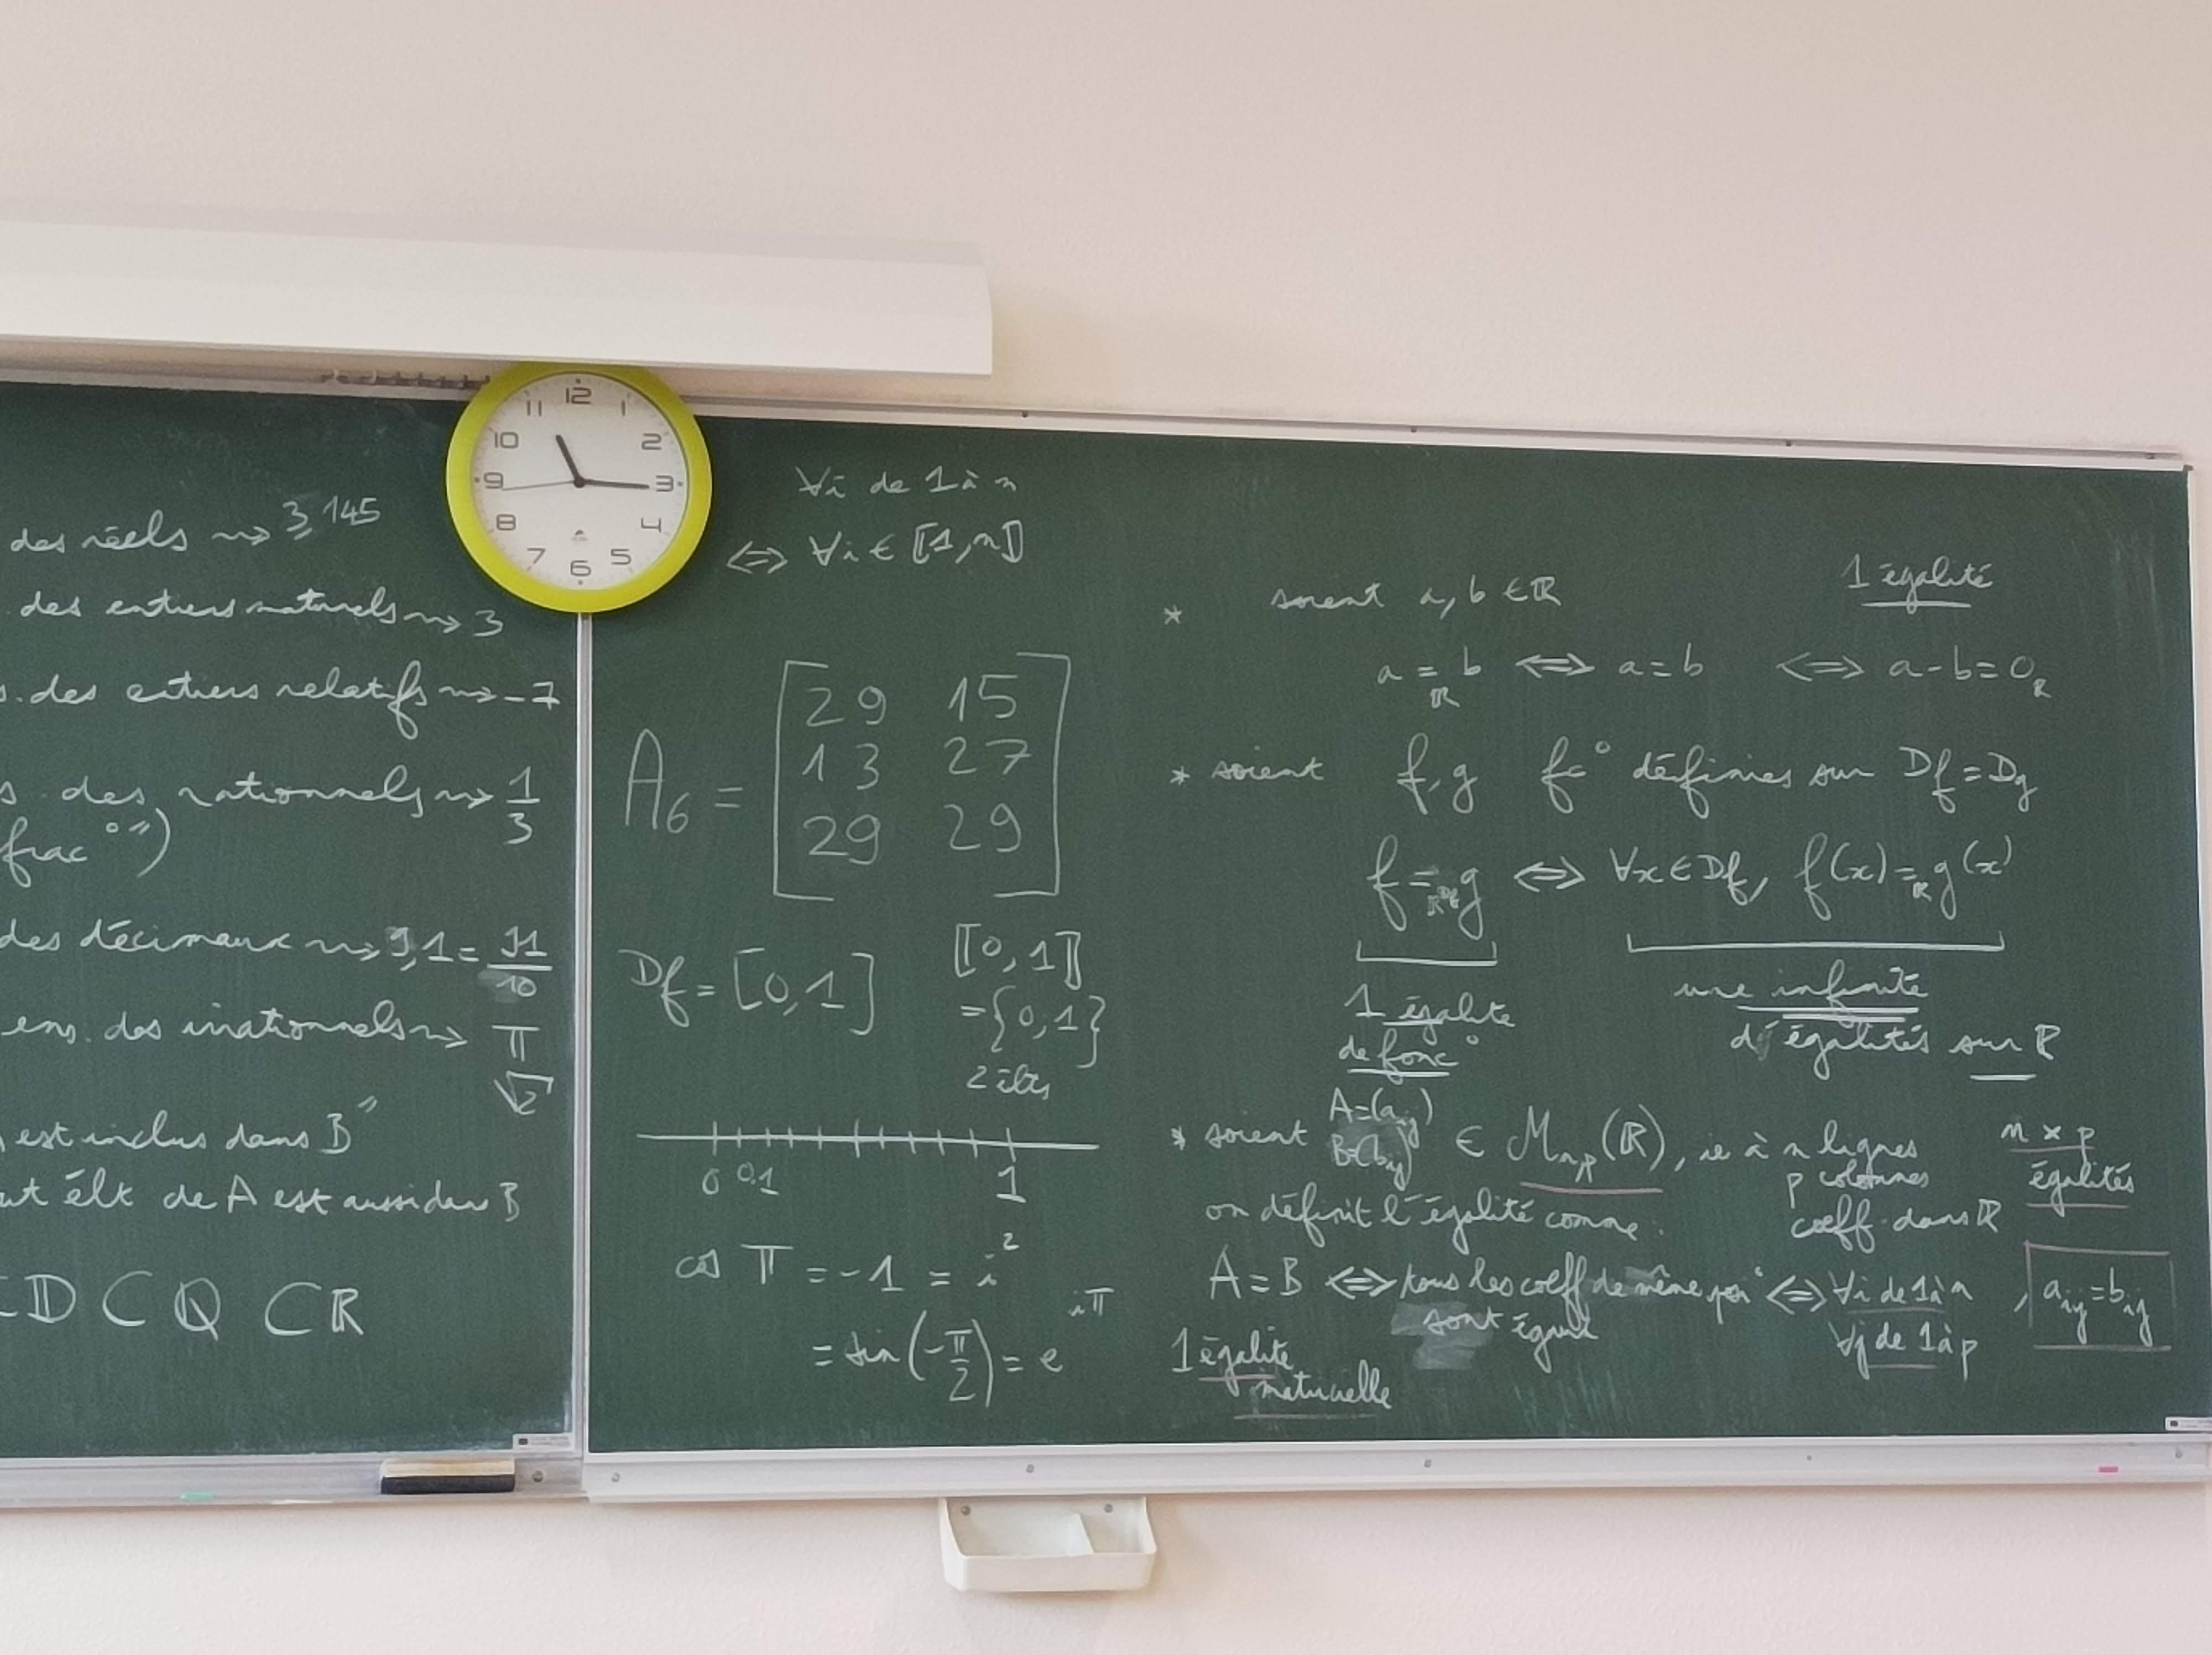 des réels ⇝ 3,145
des entiers naturels ⇝ 3
s. des entiers relatifs ⇝ -7
s. des rationnels ⇝ 1/3
frac°")
des décimaux ⇝ 9,1 = 91/10
ens. des irrationnels ⇝ π
√2
est inclus dans B"
ut élt de A est aussi dans B
⊂ D ⊂ Q ⊂ R
12 1 2 3 4 5 6 7 8 9 10 11
∀i de 1 à n
⇔ ∀i ∈ ⟦1,n⟧
A₆ = [29 15
13 27
29 29]
Df = [0,1]
⟦0,1⟧
= {0,1}
2 élts
0 0,1 1
cos π = -1 = i²
= sin(-π/2) = e^{iπ}
1 égalité
* soient a, b ∈ ℝ
a =_ℝ b ⇔ a = b ⇔ a - b = 0_ℝ
* soient f, g fc° définies sur Df = Dg
f =_{ℝ^{Df}} g ⇔ ∀x ∈ Df, f(x) =_ℝ g(x)
1 égalité
de fonc°
une infinité
d'égalités sur ℝ
* soient A=(a_ij) B=(b_ij) ∈ M_{n,p}(ℝ), ie à n lignes
p colonnes
coeff. dans ℝ
n × p
égalités
on définit l'égalité comme :
A = B ⇔ tous les coeff de même posi° ⇔ ∀i de 1 à n , a_ij = b_ij
sont égaux
∀j de 1 à p
1 égalité
matricielle